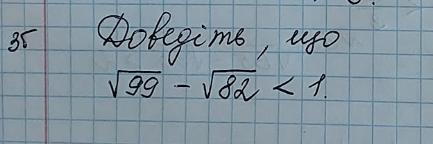 35 Доведіть, що
√99 − √82 < 1.